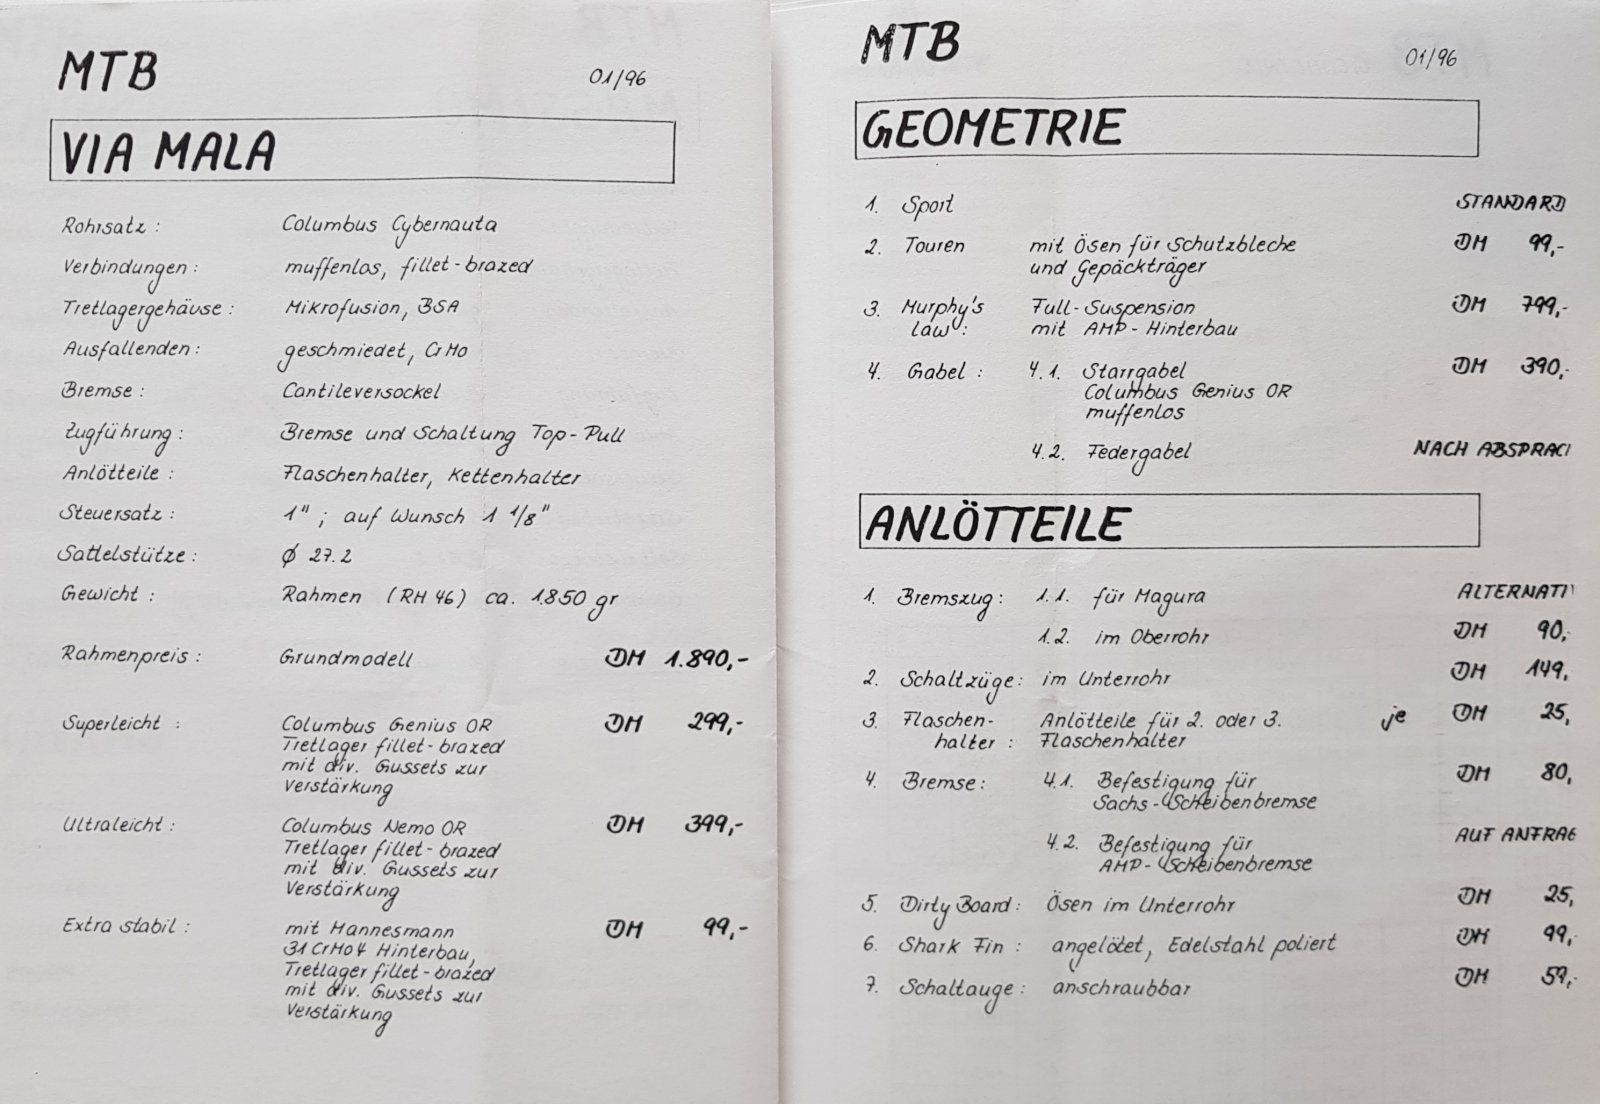 MTB
01/96
VIA MALA
Rohrsatz : Columbus Cybernauta
Verbindungen : muffenlos, fillet-brazed
Tretlagergehäuse : Mikrofusion, BSA
Ausfallenden : geschmiedet, CrMo
Bremse : Cantileversockel
Zugführung : Bremse und Schaltung Top-Pull
Anlötteile : Flaschenhalter, Kettenhalter
Steuersatz : 1" ; auf Wunsch 1 1/8"
Sattelstütze : Ø 27.2
Gewicht : Rahmen (RH 46) ca. 1.850 gr
Rahmenpreis : Grundmodell DM 1.890,-
Superleicht : Columbus Genius OR DM 299,-
Tretlager fillet-brazed
mit div. Gussets zur
Verstärkung
Ultraleicht : Columbus Nemo OR DM 399,-
Tretlager fillet-brazed
mit div. Gussets zur
Verstärkung
Extra stabil : mit Mannesmann DM 99,-
31 CrMo 4 Hinterbau,
Tretlager fillet-brazed
mit div. Gussets zur
Verstärkung
MTB
01/96
GEOMETRIE
1. Sport STANDARD
2. Touren mit Ösen für Schutzbleche DM 99,-
und Gepäckträger
3. Murphy's Full-Suspension DM 799,-
law : mit AMP-Hinterbau
4. Gabel : 4.1. Starrgabel DM 390,-
Columbus Genius OR
muffenlos
4.2. Federgabel NACH ABSPRAC
ANLÖTTEILE
1. Bremszug : 1.1. für Magura ALTERNATI
1.2. im Oberrohr DM 90,-
2. Schaltzüge : im Unterrohr DM 149,
3. Flaschen- Anlötteile für 2. oder 3. je DM 25,
halter : Flaschenhalter
4. Bremse : 4.1. Befestigung für DM 80,
Sachs-Scheibenbremse
4.2. Befestigung für AUF ANFRAG
AMP-Scheibenbremse
5. Dirty Board : Ösen im Unterrohr DM 25,
6. Shark Fin : angelötet, Edelstahl poliert DM 99,-
7. Schaltauge : anschraubbar DM 59,-